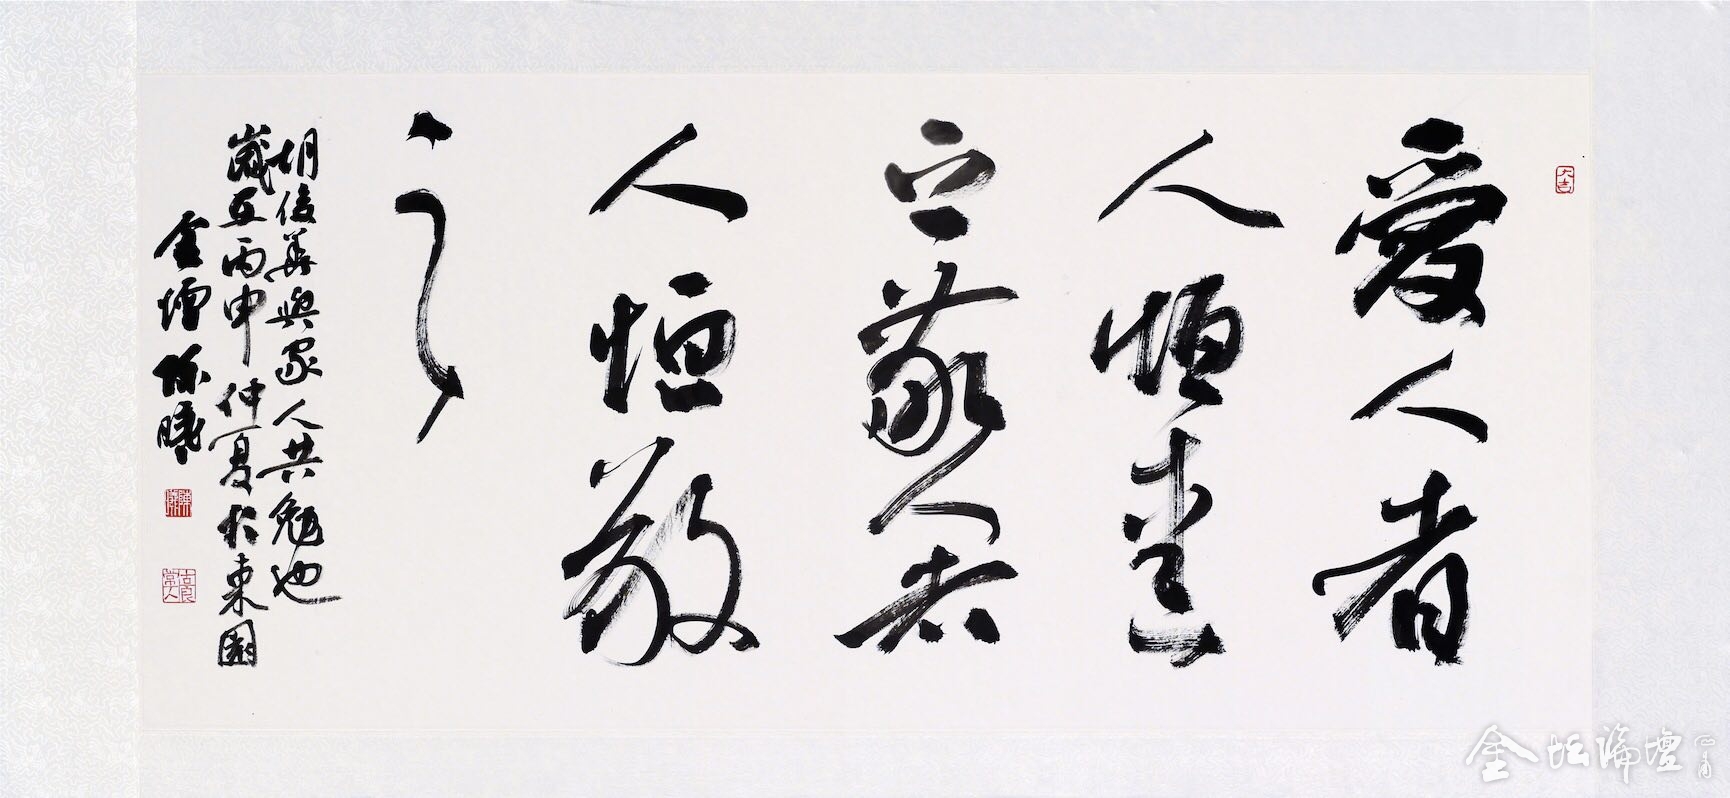 大吉
愛人者
人恒愛
之敬人者
人恒敬
之
胡俊與家人共勉也
歲在丙申仲夏於東園
金壇陳曦
金坛論壇